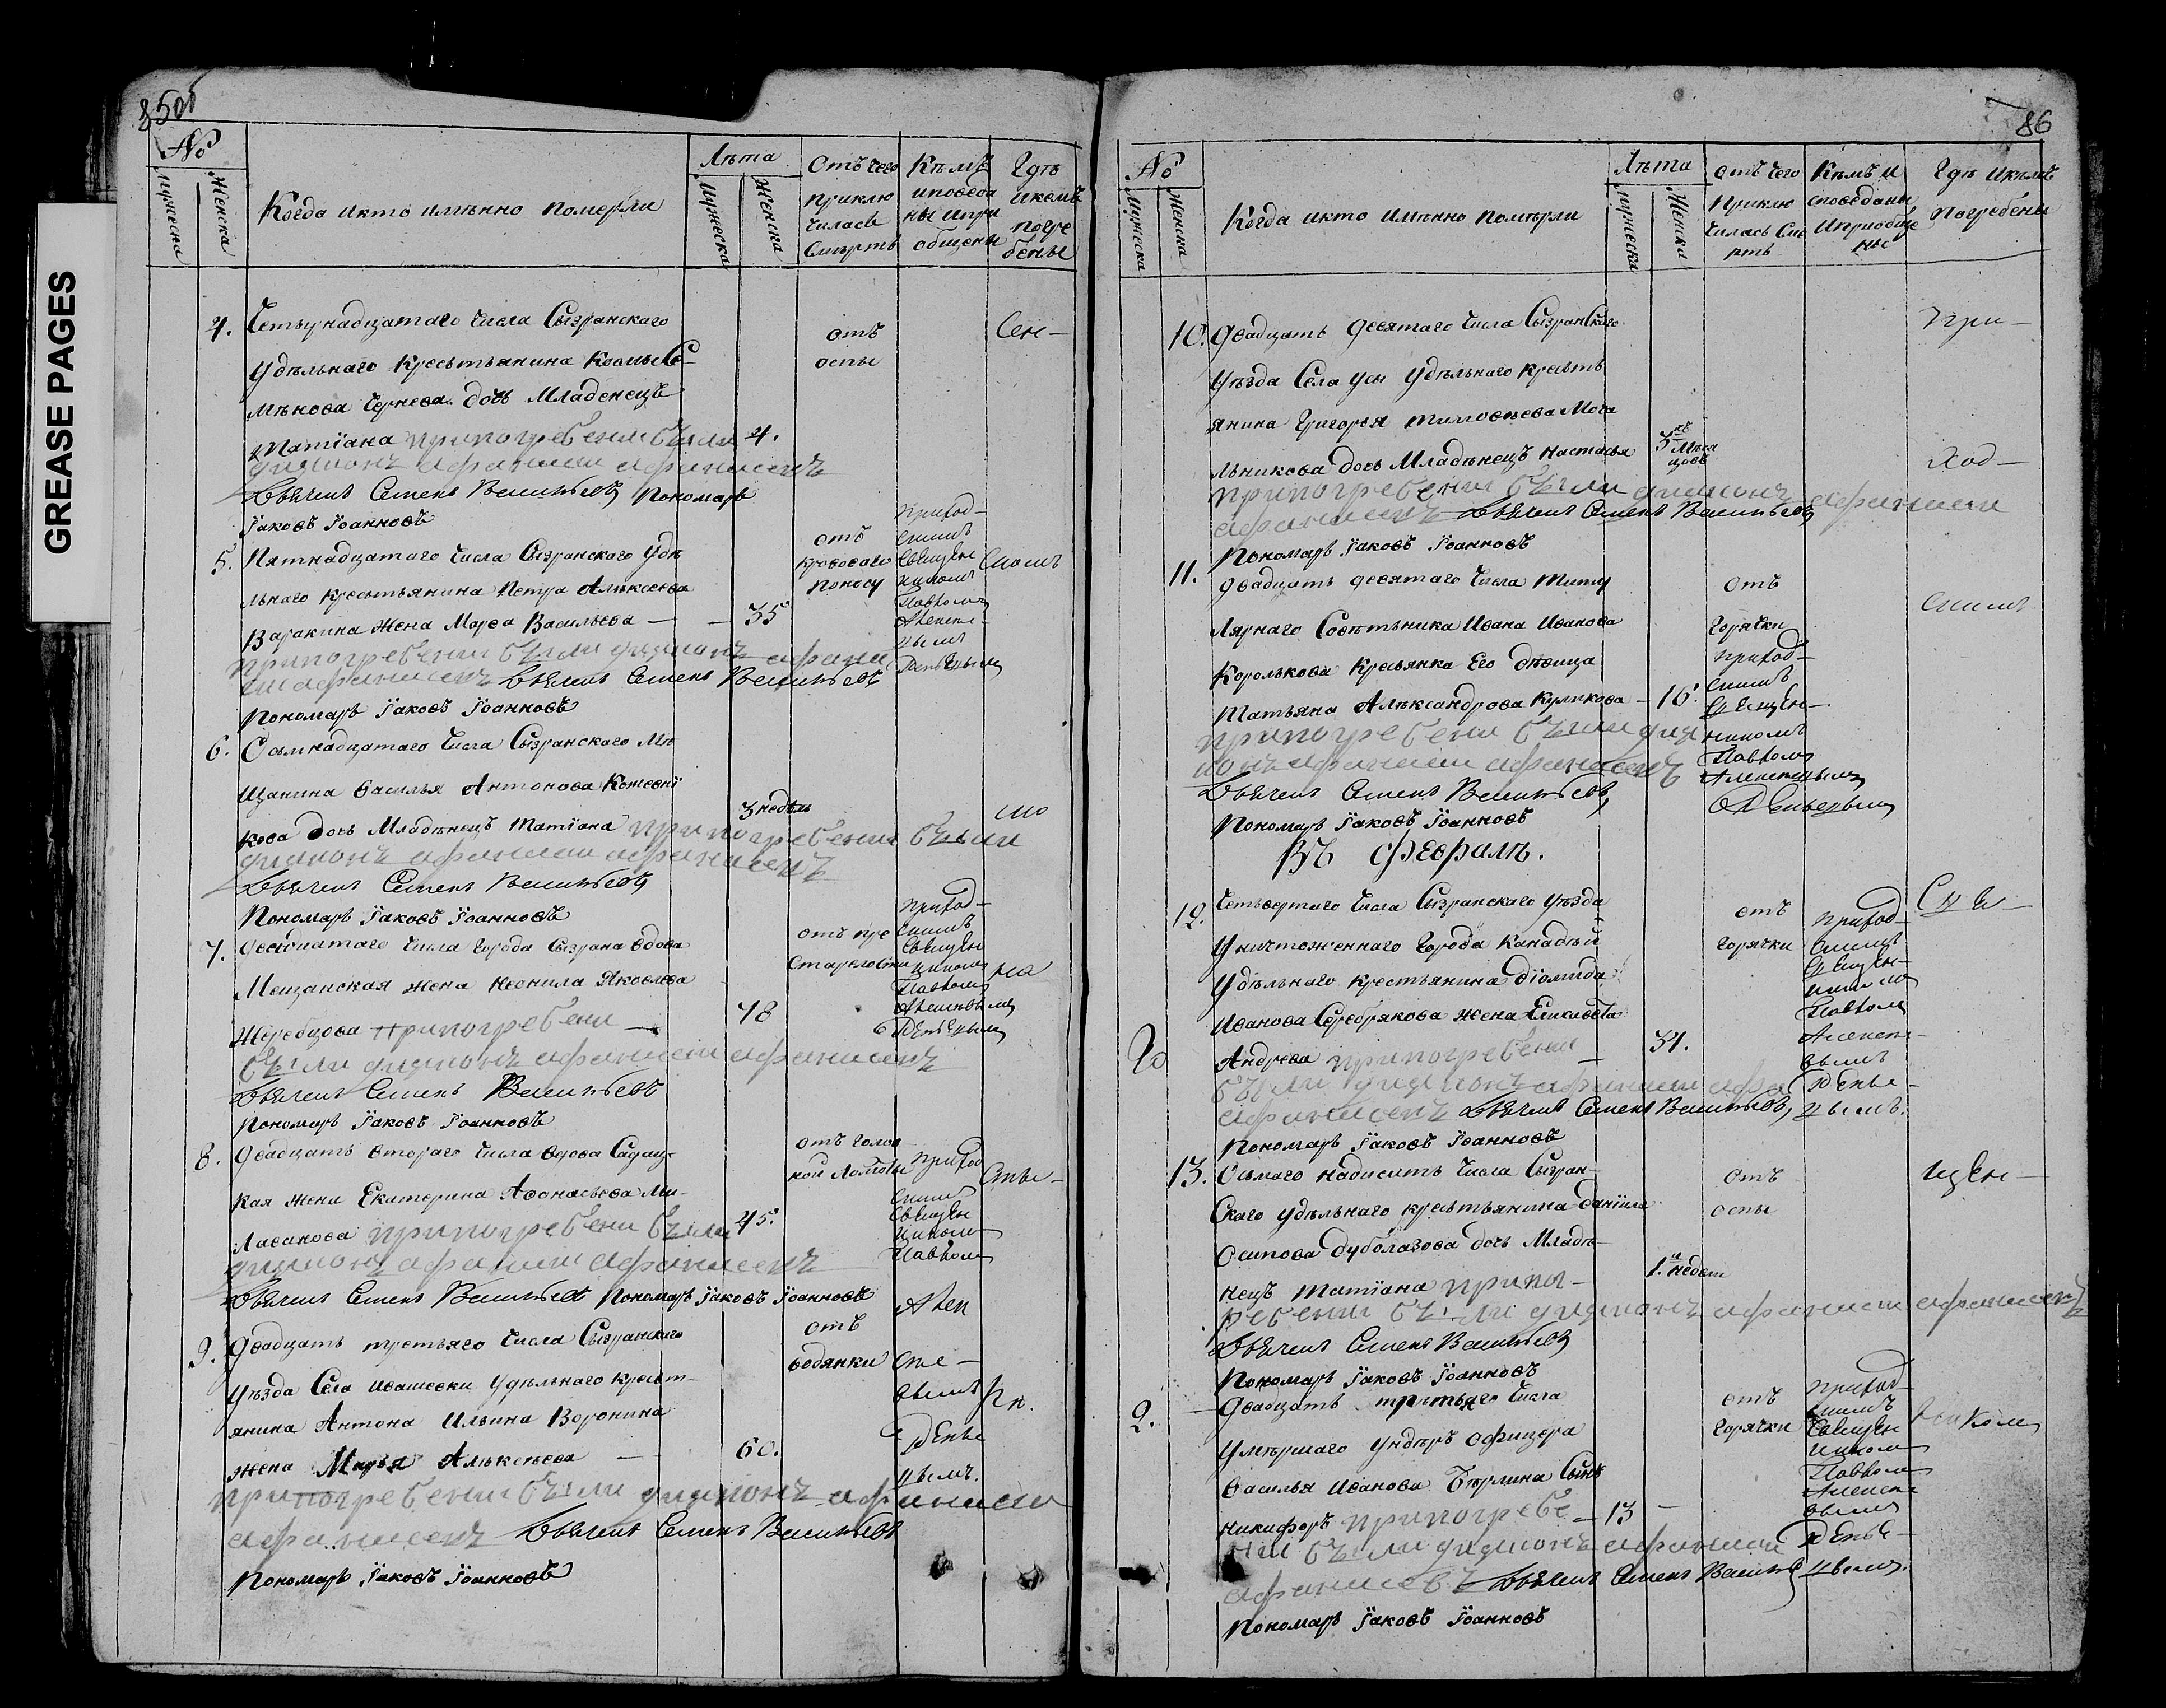 GREASE PAGES
85об
№
Мужеска
Женска
Когда и кто имѣнно померли
Лѣта
Мужеска
Женска
Отъ чего
приклю
чилась
Смѣрть
Кѣмъ
исповеда
ны и при
общены
Гдѣ
и кемъ
погре
бены
4. Четырнадцатаго числа Сызранскаго
Удѣльнаго Кресьтьянина Косьмы Се-
мѣнова Чернева дочь Младенецъ
Матїана при погребении были 4.
диаконъ афанасии афанасевъ
Дьячекъ Семенъ Васильевъ Пономарь
Їаковъ Їоанновъ
отъ
оспы
Сен-
5. Пятнадцатаго числа Сызранскаго Удѣ
льнаго кресьтьянина Петра Алѣксеева
Варакина жена Марѳа Васильева — 35
при погребении были диаконъ афана
сии афанасевъ Дьячекъ Семенъ Васильевъ
Пономарь Їаковъ Їоанновъ
отъ
кроваваго
поносу
приход-
скимъ
Священ
никомъ
Павлом
Алексе-
вымъ
6. Осьмнадцатаго числа Сызранскаго Мѣ
щанина Василья Антонова Кожевнї
кова дочь Младѣнецъ Матїана при погребении были
3 недѣль
диаконъ афанасии афанасевъ
Дьячекъ Семенъ Васильевъ
Пономарь Їаковъ Їоанновъ
7. Двадцатаго числа города Сызрана вдова
Мещанская жена Неонила Яковлева
Жеребцова при погребени 78
были диаконъ афанасии афанасевъ
Дьячекъ Семенъ Васильевъ
Пономарь Їаковъ Їоанновъ
отъ пре
старелости
приход-
скимъ
Священ
никомъ
Павлом
на
8. Двадцать втораго числа вдова Салдац-
кая жена Екатерина Аѳонасьева Ми-
лаванова при погребени были 45.
диаконъ афанасии афанасевъ
Дьячекъ Семенъ Васильевъ Пономарь Їаковъ Їоанновъ
отъ голов
ной ломоты
приход
скимъ
Священ
ником
Павлом
Алек
9. Двадцать третьяго числа Сызранскаго
Уѣзда Села Ивашевки Удѣльнаго кресьт-
янина Антона Ильина Воронина
жена Марья Алѣксѣева — 60.
при погребении были диаконъ афанасии
афанасевъ Дьячекъ Семенъ Васильевъ
Пономарь Їаковъ Їоанновъ
отъ
водянки
86
№
Мужеска
Женска
Когда и кто имѣнно помѣрли
Лѣта
Мужеска
Женска
отъ чего
приклю
чилась Сме
рть
Кѣмъ и
споведаны
и приобще
ны
Гдѣ и кѣмъ
погребены
10. Двадцать девятаго числа Сызранскаго
Уѣзда Села Усы Удѣльнаго кресьть
янина Григорья Тимоѳѣева Моча
льникова дочь Младѣнецъ Настасья 3 мѣся
цовъ
при погребении были диаконъ афанасии
афанасевъ Дьячекъ Семенъ Васильевъ
Пономарь Їаковъ Їоанновъ
При-
ход-
11. Двадцать девятаго числа Титу
лярнаго Совѣтьника Ивана Иванова
Королькова Кресьянка Его дѣвица
Татьяна Алѣксандрова Куликова — 16.
при погребени были диа
конъ афанасии афанасевъ
Дьячекъ Семенъ Васильевъ
Пономарь Їаковъ Їоанновъ
отъ
горячки
приход-
скимъ
Священ-
никомъ
Павлом
скимъ
Въ Февралѣ.
12. Четьвертаго числа Сызранскаго Уѣзда
Уничтоженнаго города Канадѣй
Удѣльнаго кресьтьянина Дїомида
Иванова Серебрякова жена Елисавета
Андрева при погребении — 34.
были диаконъ афанасии афа
афанасевъ Дьячекъ Семенъ Васильевъ
Пономарь Їаковъ Їоанновъ
отъ
горячки
приход-
скимъ
Священ-
никомъ
Павлом
Алексе-
вымъ
13. Осьмаго надисять числа Сызран-
Скаго удѣльнаго кресьтьянина Данїила
Осипова Дуболазова дочь Младѣ-
нецъ Матїана при пог-
ребении были диаконъ афанасии афанасевъ
Дьячекъ Семенъ Васильевъ
Пономарь Їаковъ Їоанновъ
отъ
оспы
щен-
2. Двадцать третьяго числа
Умѣршаго Ундѣръ Офицера
Василья Иванова Бѣрлина Сынъ
Никифоръ при погребе — 13 —
нии были диаконъ афанасии
афанасевъ Дьячекъ Семенъ Васильевъ
Пономарь Їаковъ Їоанновъ
отъ
горячки
приход-
скимъ
Священ
ником
Павлом
Алексе
вымъ
никомъ